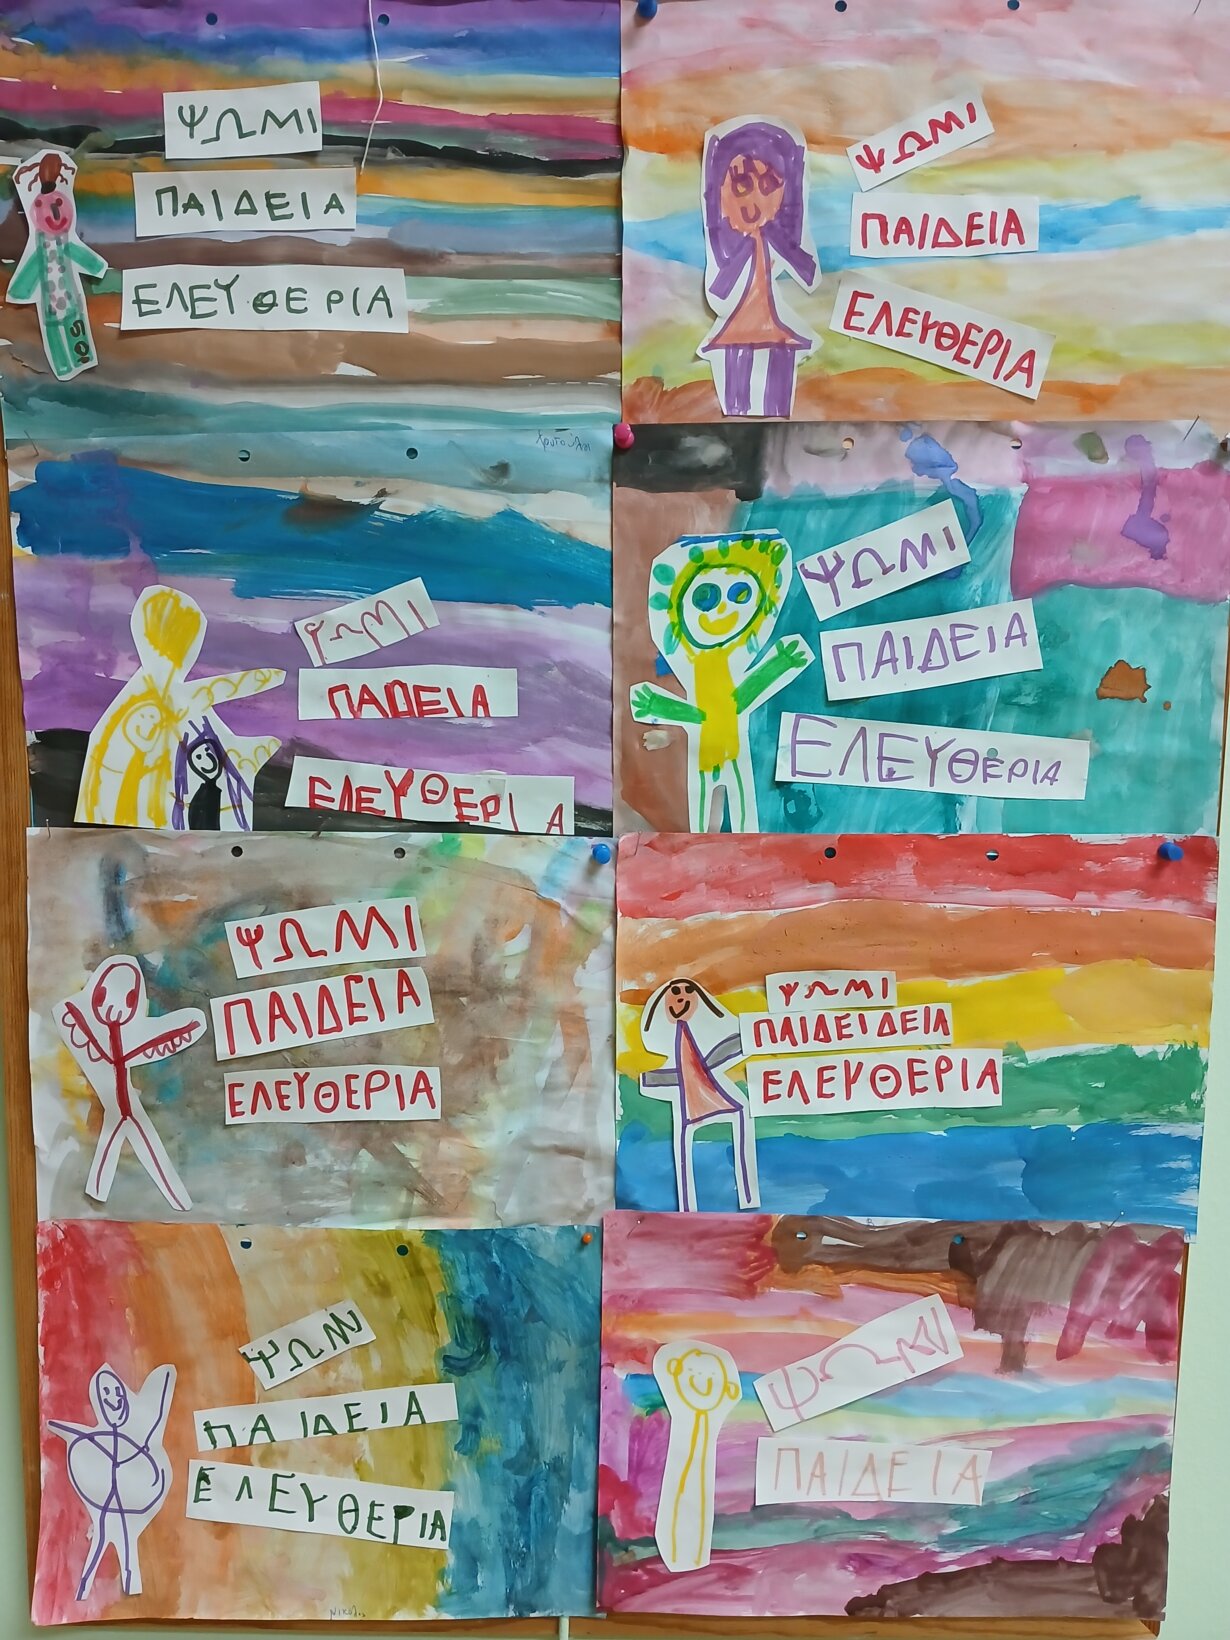 ΨΩΜΙ
ΠΑΙΔΕΙΑ
ΕΛΕΥΘΕΡΙΑ
ΨΩΜΙ
ΠΑΙΔΕΙΑ
ΕΛΕΥΘΕΡΙΑ
ΨΩΜΙ
ΠΑΔΕΙΑ
ΕΛΕΥΘΕΡΙΑ
ΨΩΜΙ
ΠΑΙΔΕΙΑ
ΕΛΕΥΘΕΡΙΑ
ΨΩΜΙ
ΠΑΙΔΕΙΑ
ΕΛΕΥΘΕΡΙΑ
ΨΩΜΙ
ΠΑΙΔΕΙΔΕΙΑ
ΕΛΕΥΘΕΡΙΑ
ΨΩΜ
ΠΑΙΔΕΙΑ
ΕΛΕΥΘΕΡΙΑ
ΨΩΜΙ
ΠΑΙΔΕΙΑ